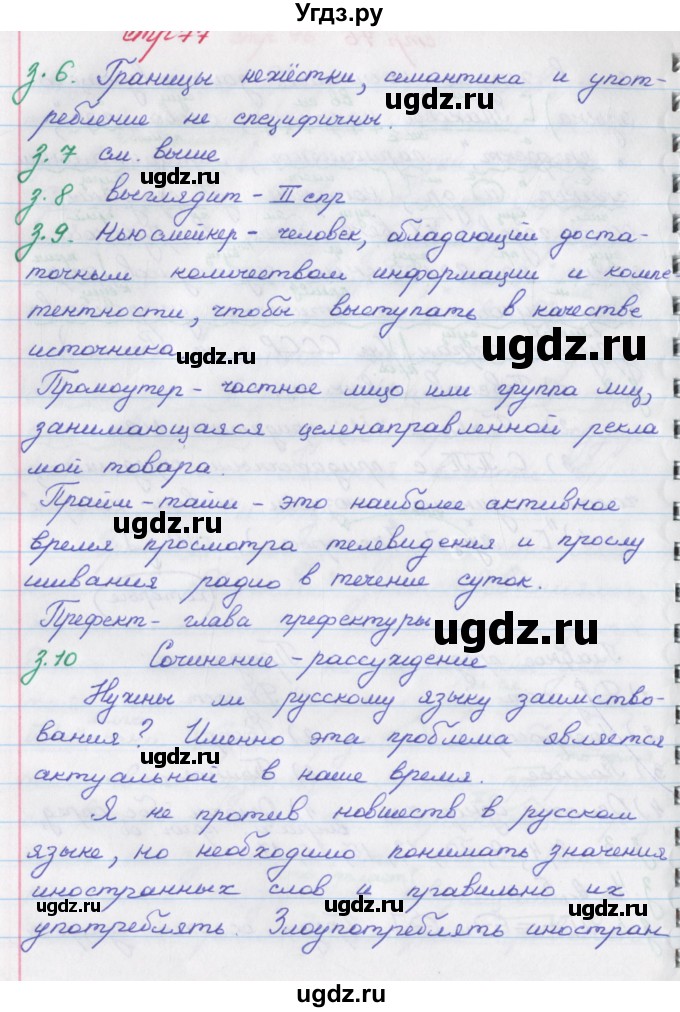 Угдз.ру
стр 77
з.6. Границы нежёстки, семантика и упот-
ребление не специфичны.
ugdz.ru
з.7 см. выше
ugdz.ru
з.8 выглядит - II спр
з.9. Ньюсмейкер - человек, обладающий доста-
точным количеством информации и компе
тентности, чтобы выступать в качестве
источника
ugdz.ru
Промоутер - частное лицо или группа лиц,
занимающаяся целенаправленной рекла
мой товара.
Прайм-тайм - это наиболее активное
ugdz.ru
время просмотра телевидения и прослу
шивания радио в течение суток.
Префект - глава префектуры
ugdz.ru
з.10 Сочинение - рассуждение
Нужны ли русскому языку заимство-
вания? Именно эта проблема является
ugdz.ru
актуальной в наше время.
Я не против новшеств в русском
языке, но необходимо понимать значения
иностранных слов и правильно их
ugdz.ru ugdz.ru ugdz.ru
употреблять. Злоупотреблять иностран
ugdz.ru